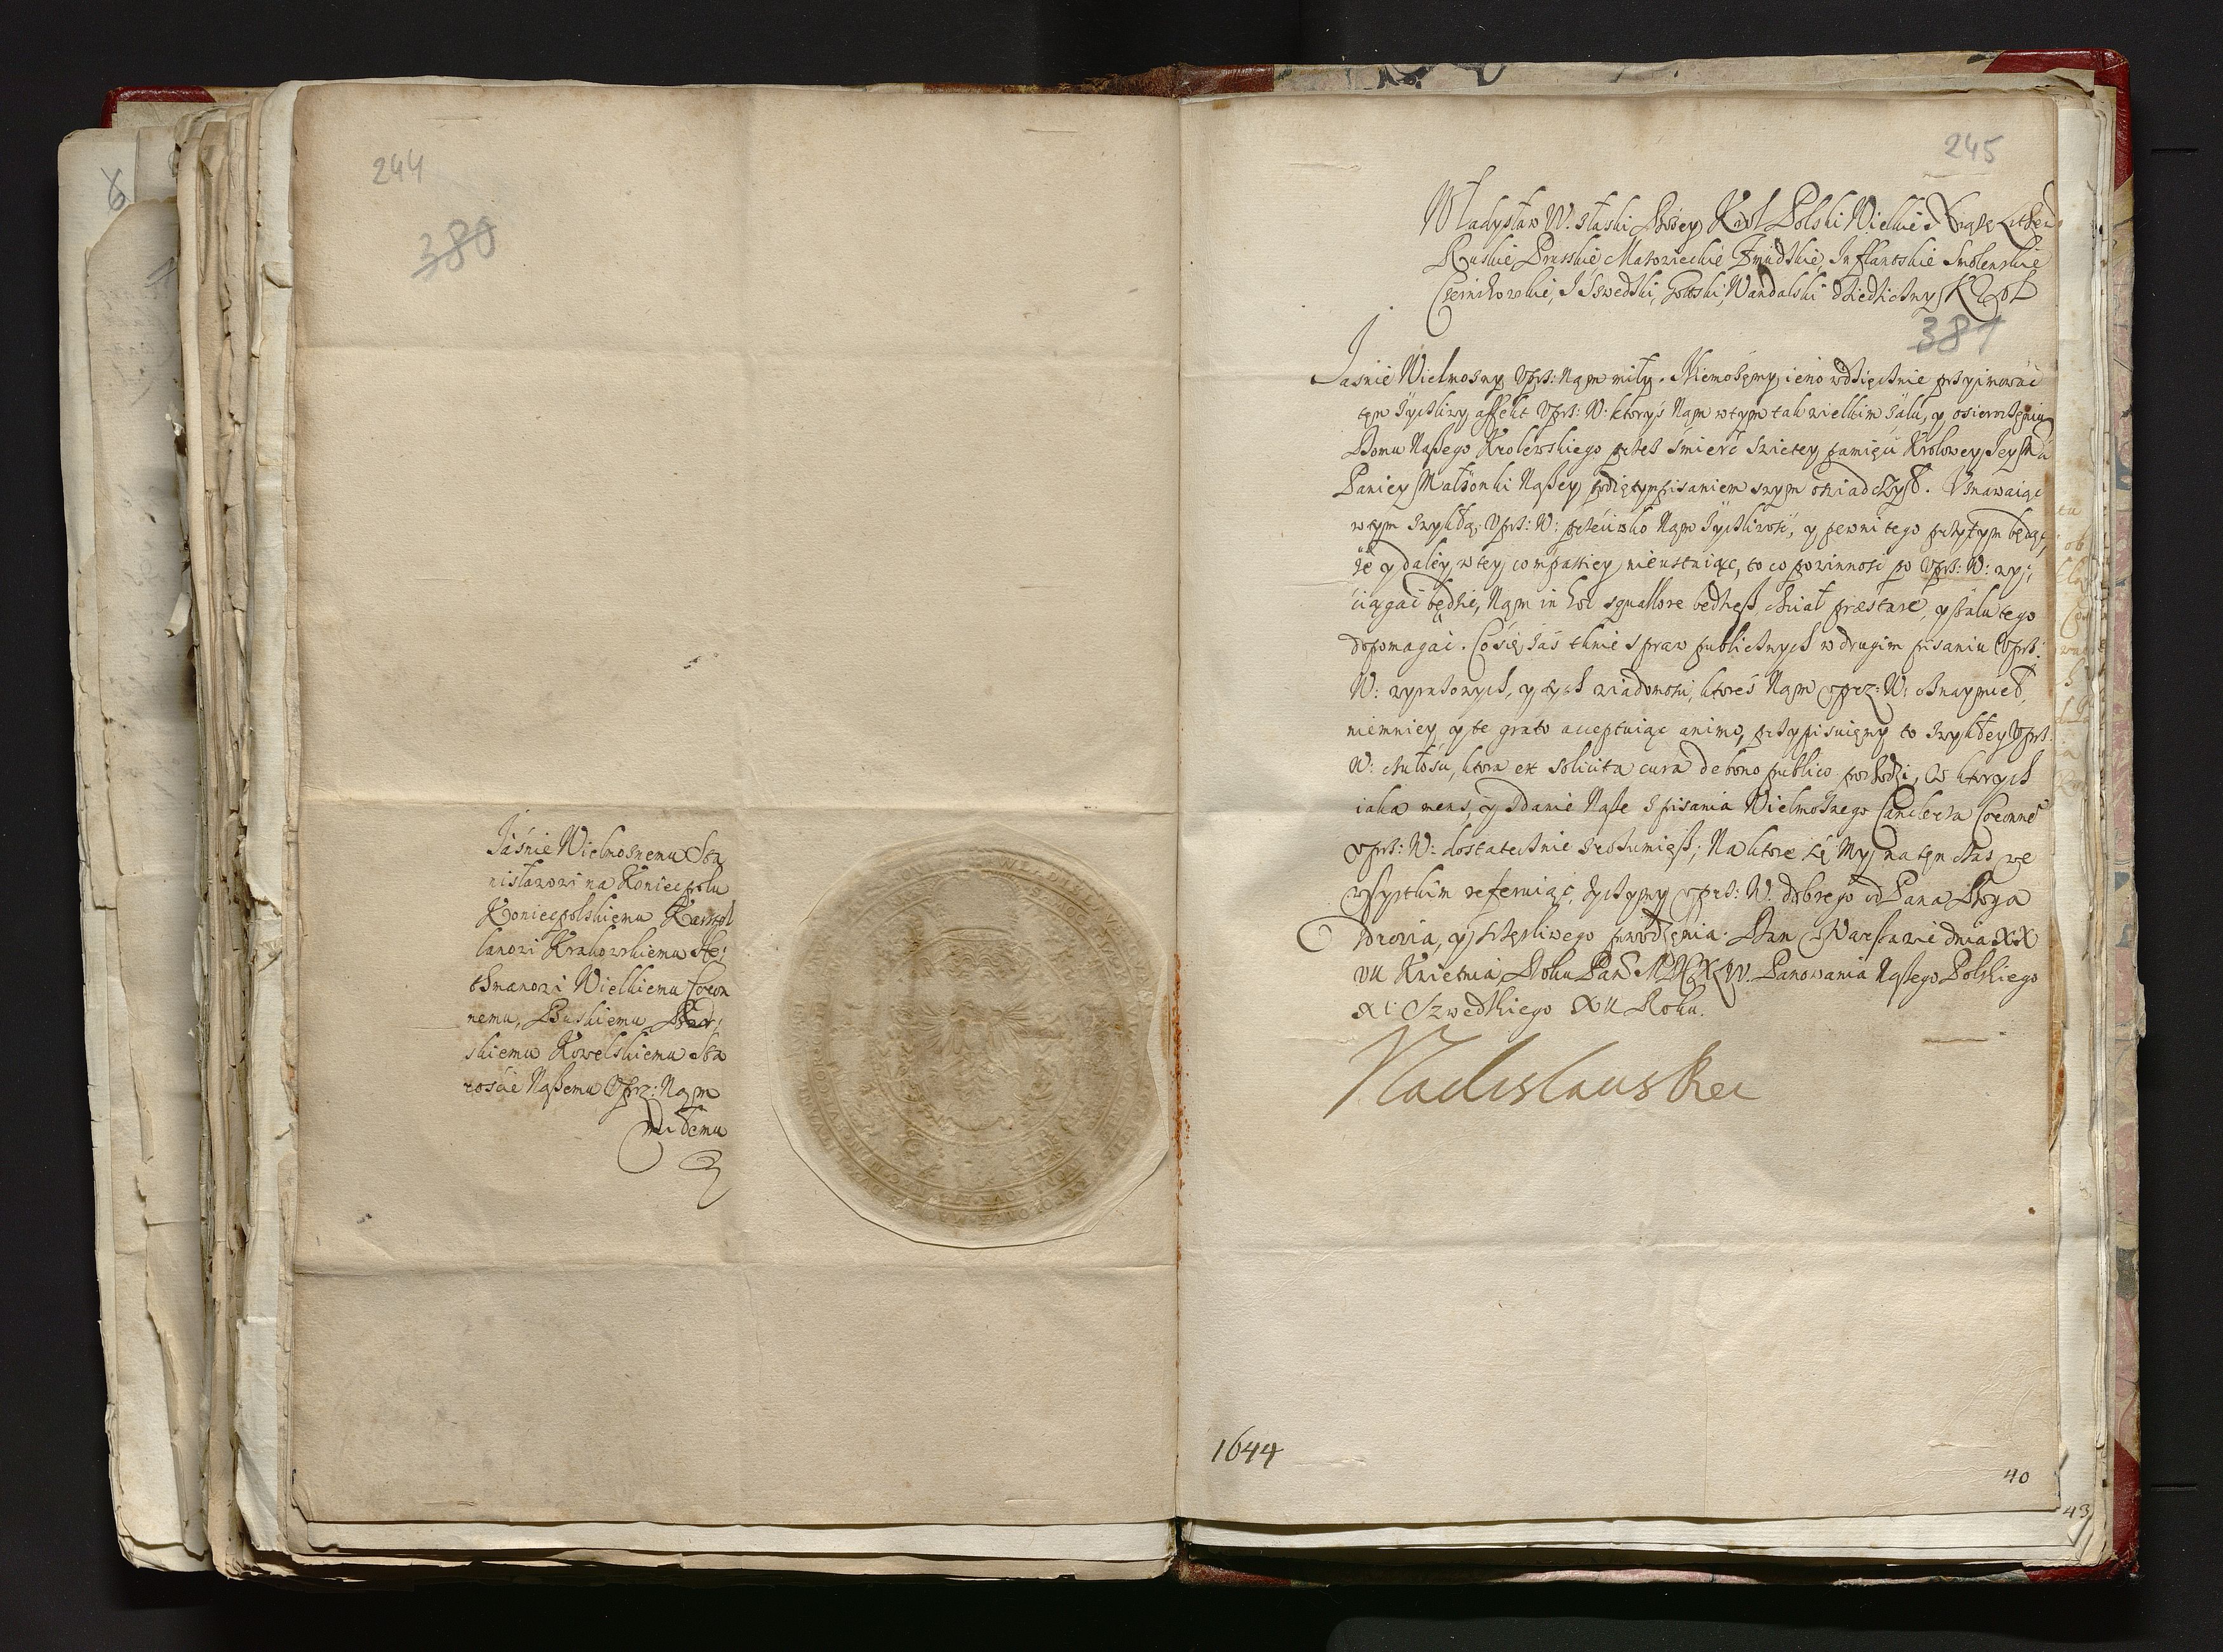 244
380
Jaśnie Wielmożnemu Sta
nisławowi na Koniecpolu
Koniecpolskiemu Kasztel
lanowi Krakowskiemu He;
thmanowi Wielkiemu Coron
nemu, Buskiemu Bar;
skiemu Kowelskiemu Sta
roście Naszemu Uprz: Nąm
miłemu
245
Władysław IV. z łaski Bożey Krol Polski Wielkie Xiążę Lithew
Ruskie, Prusskie Mazowieckie Żmudzkie, Inflantskie Smolenskie
Czernihowskie, I Szwedzki, Gottski, Wandalski dziedziczny Krol
381
Jasnie Wielmożny Uprz: Nąm miły. Niemożemy ieno wdzięcznie przyimować
ten życzliwy affekt Uprz: W: ktoryś Nąm w tym tak wielkim żalu, y osieroceniu
Domu Naszego Krolewskiego przez śmierć Swietey pamięci Krolowey Jey Mci
Paniey Małżonki Naszey, pisaniem swym oswiadczył. Uznawaiąc
w tym zwykłą Uprz: W: przeciwko Nąm życzliwość, y pewni tego przytym będąc,
że y daley w tey compassiey nieustaiąc, to co powinność po Uprz: W: wy;
ciągać będzie, Nąm in hoc squallore będziesz chciał præstare, y żalu tego
dopomagać. Co się zaś tknie spraw publicznych w drugim pisaniu Uprz:
W: wyrażonych, y tych wiadomości, ktoreś Nąm Uprz: W: oznaymieł,
niemniey y te grato acceptuiąc animo, przypisuiemy to zwykłey Uprz:
W: czułości, ktora ex solicita cura de bono publico pochodzi, O ktorych
iaka mens, y zdanie Nasze z pisania Wielmożnego Canclerza Coronne
Uprz: W: dostatecznie zrozumiesz; Na ktore się My na ten czas we
wszystkim referuiąc, życzymy Uprz: W: dobrego od Pana Boga
zdrowia, y szczęśliwego powodzenia. Dan w Warszawie dnia XX
VII Kwietnia Roku Pań MDCXLIV. Panowania Naszego Polskiego
XI. Szwedzkiego XII Roku.
Vladislaus Rex
1644
40
43